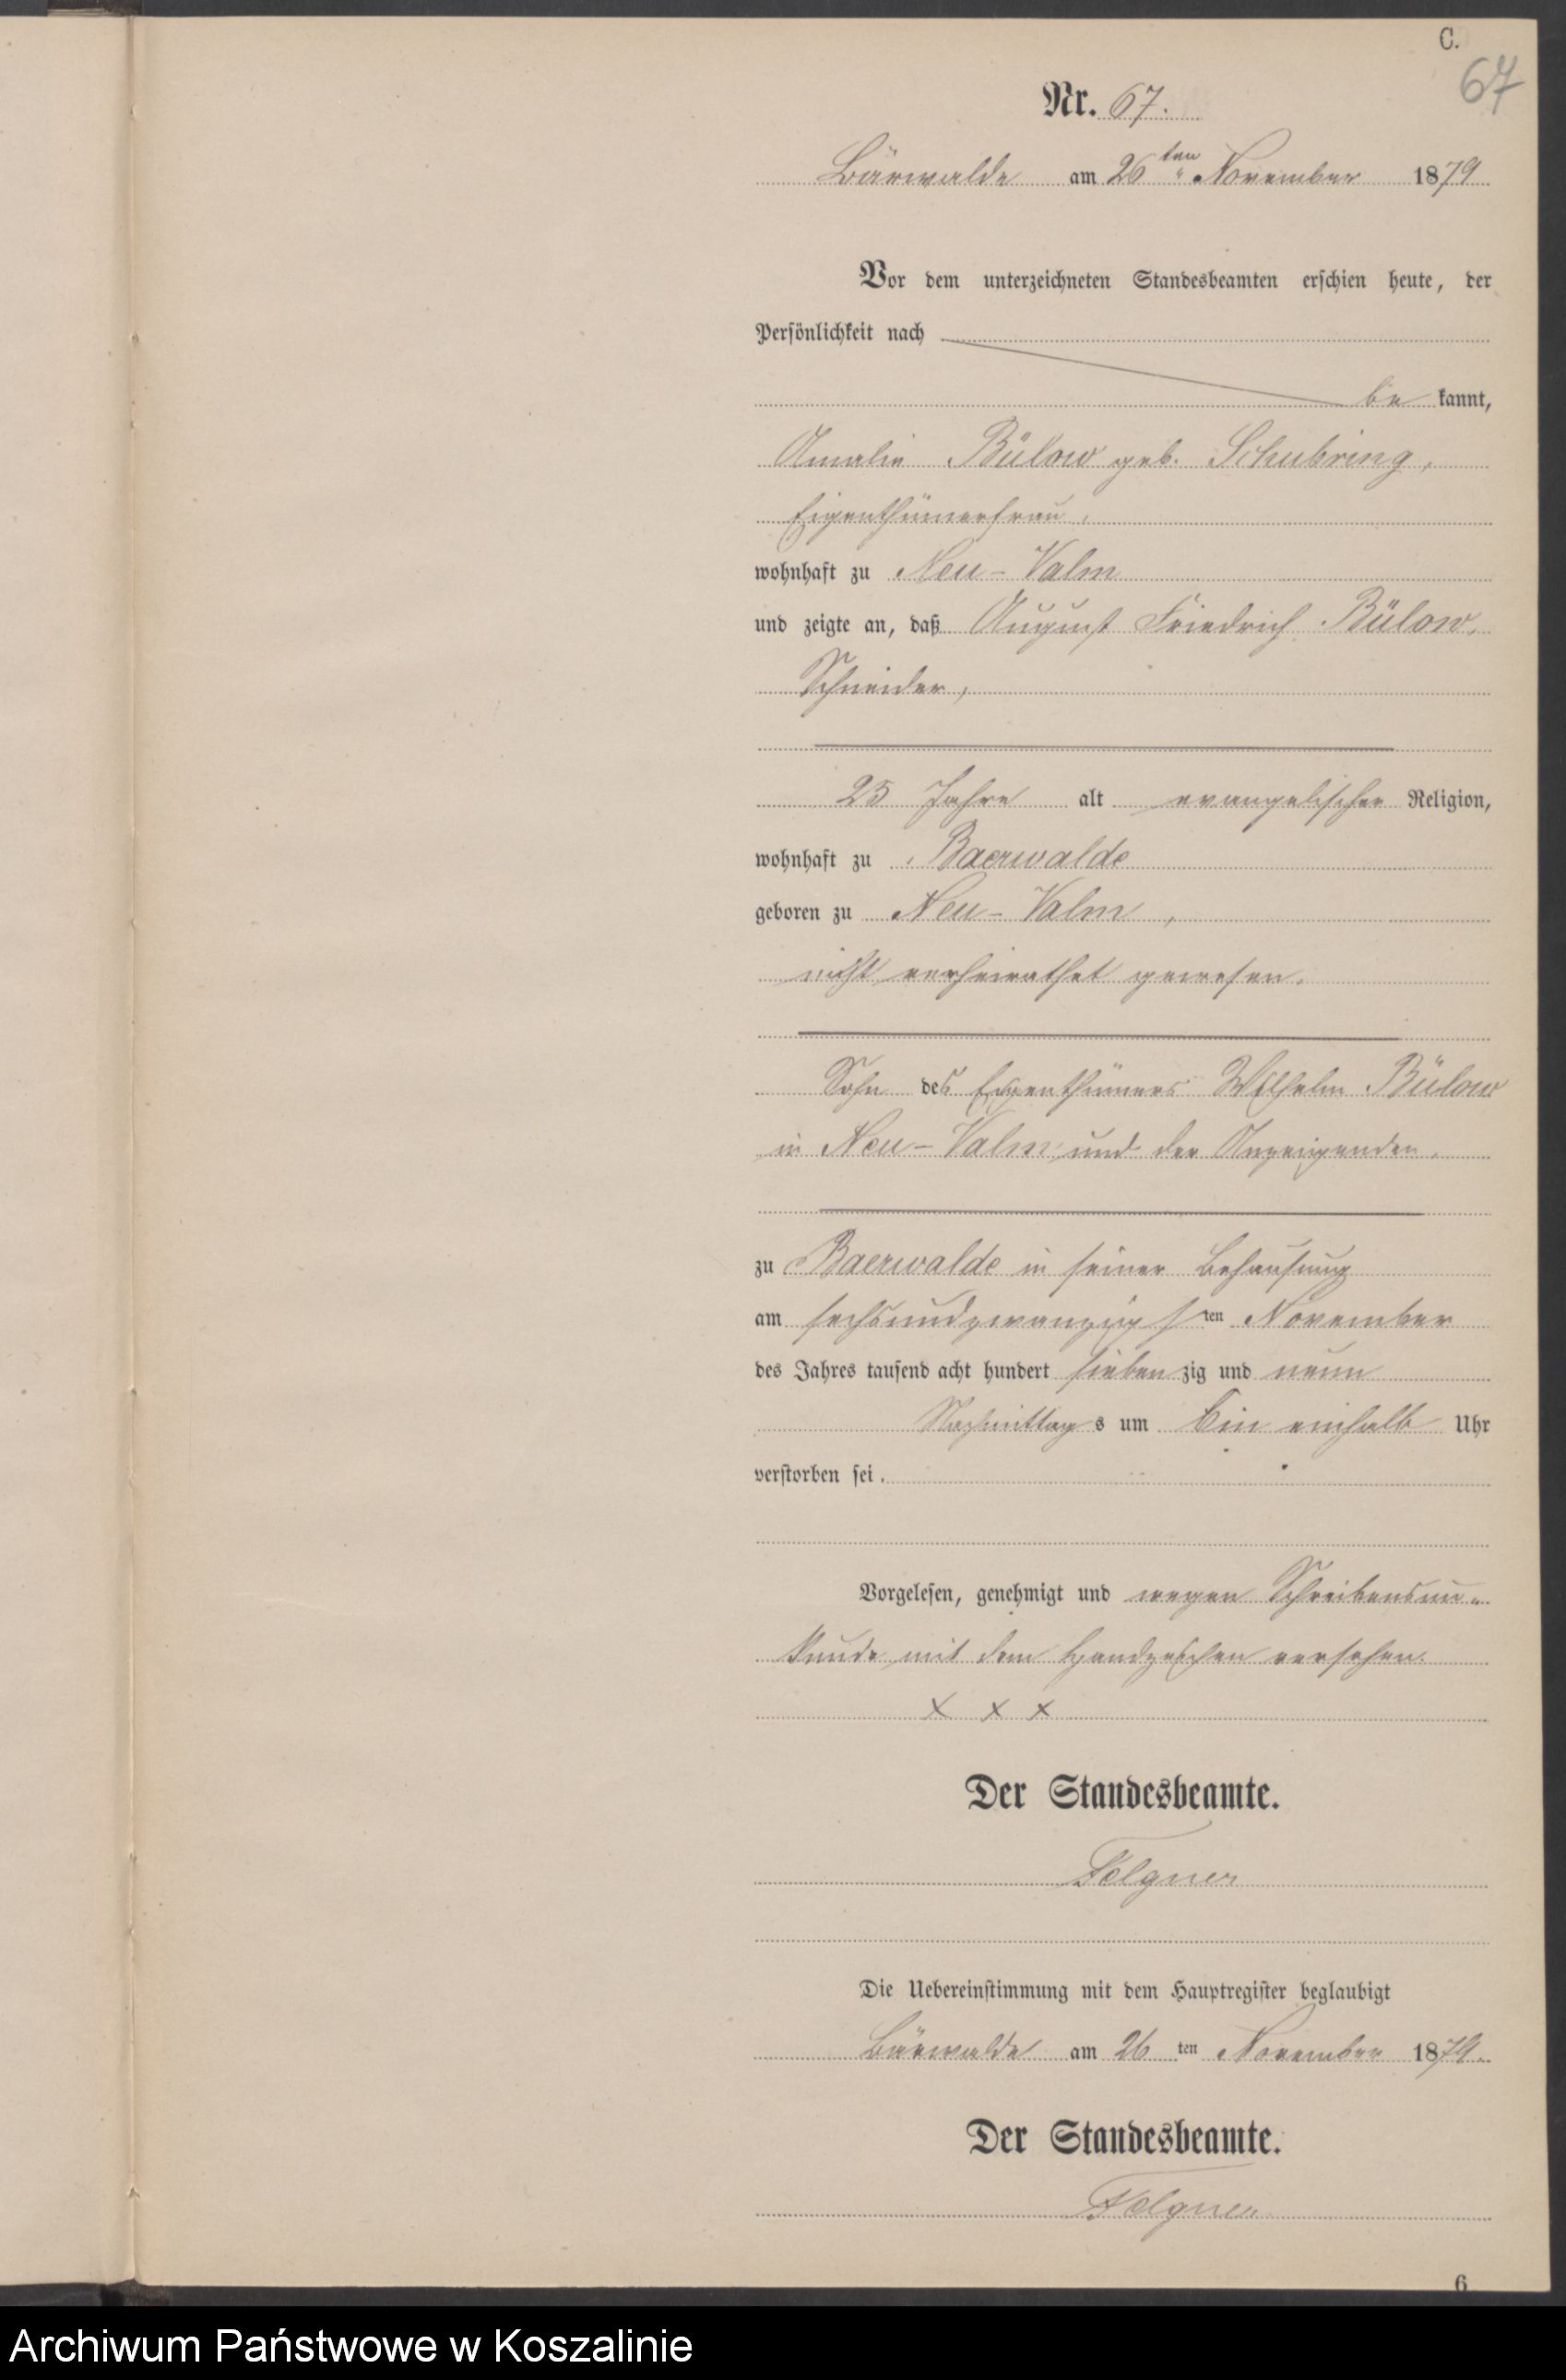 C.
67
Nr. 67.
Bärwalde am 26 ten November 1879
Vor dem unterzeichneten Standesbeamten erschien heute, der
Persönlichkeit nach
be kannt,
Amalie Bülow geb. Schubring,
Eigenthümerfrau,
wohnhaft zu Neu-Valm
und zeigte an, daß August Friedrich Bülow,
Schneider,
25 Jahre alt evangelischer Religion,
wohnhaft zu Baerwalde
geboren zu Neu-Valm,
nicht verheirathet gewesen.
Sohn des Eigenthümers Wilhelm Bülow
in Neu-Valm und der Anzeigenden.
zu Baerwalde in seiner Behausung
am sechsundzwanzigsten November
des Jahres tausend acht hundert sieben zig und neun
Nachmittag s um Ein einhalb Uhr
verstorben sei.
Vorgelesen, genehmigt und wegen Schreibensun-
kunde mit dem Handzeichen versehen.
x x x
Der Standesbeamte.
Felgner
Die Uebereinstimmung mit dem Hauptregister beglaubigt
Bärwalde am 26 ten November 1879.
Der Standesbeamte.
Felgner
6
Archiwum Państwowe w Koszalinie